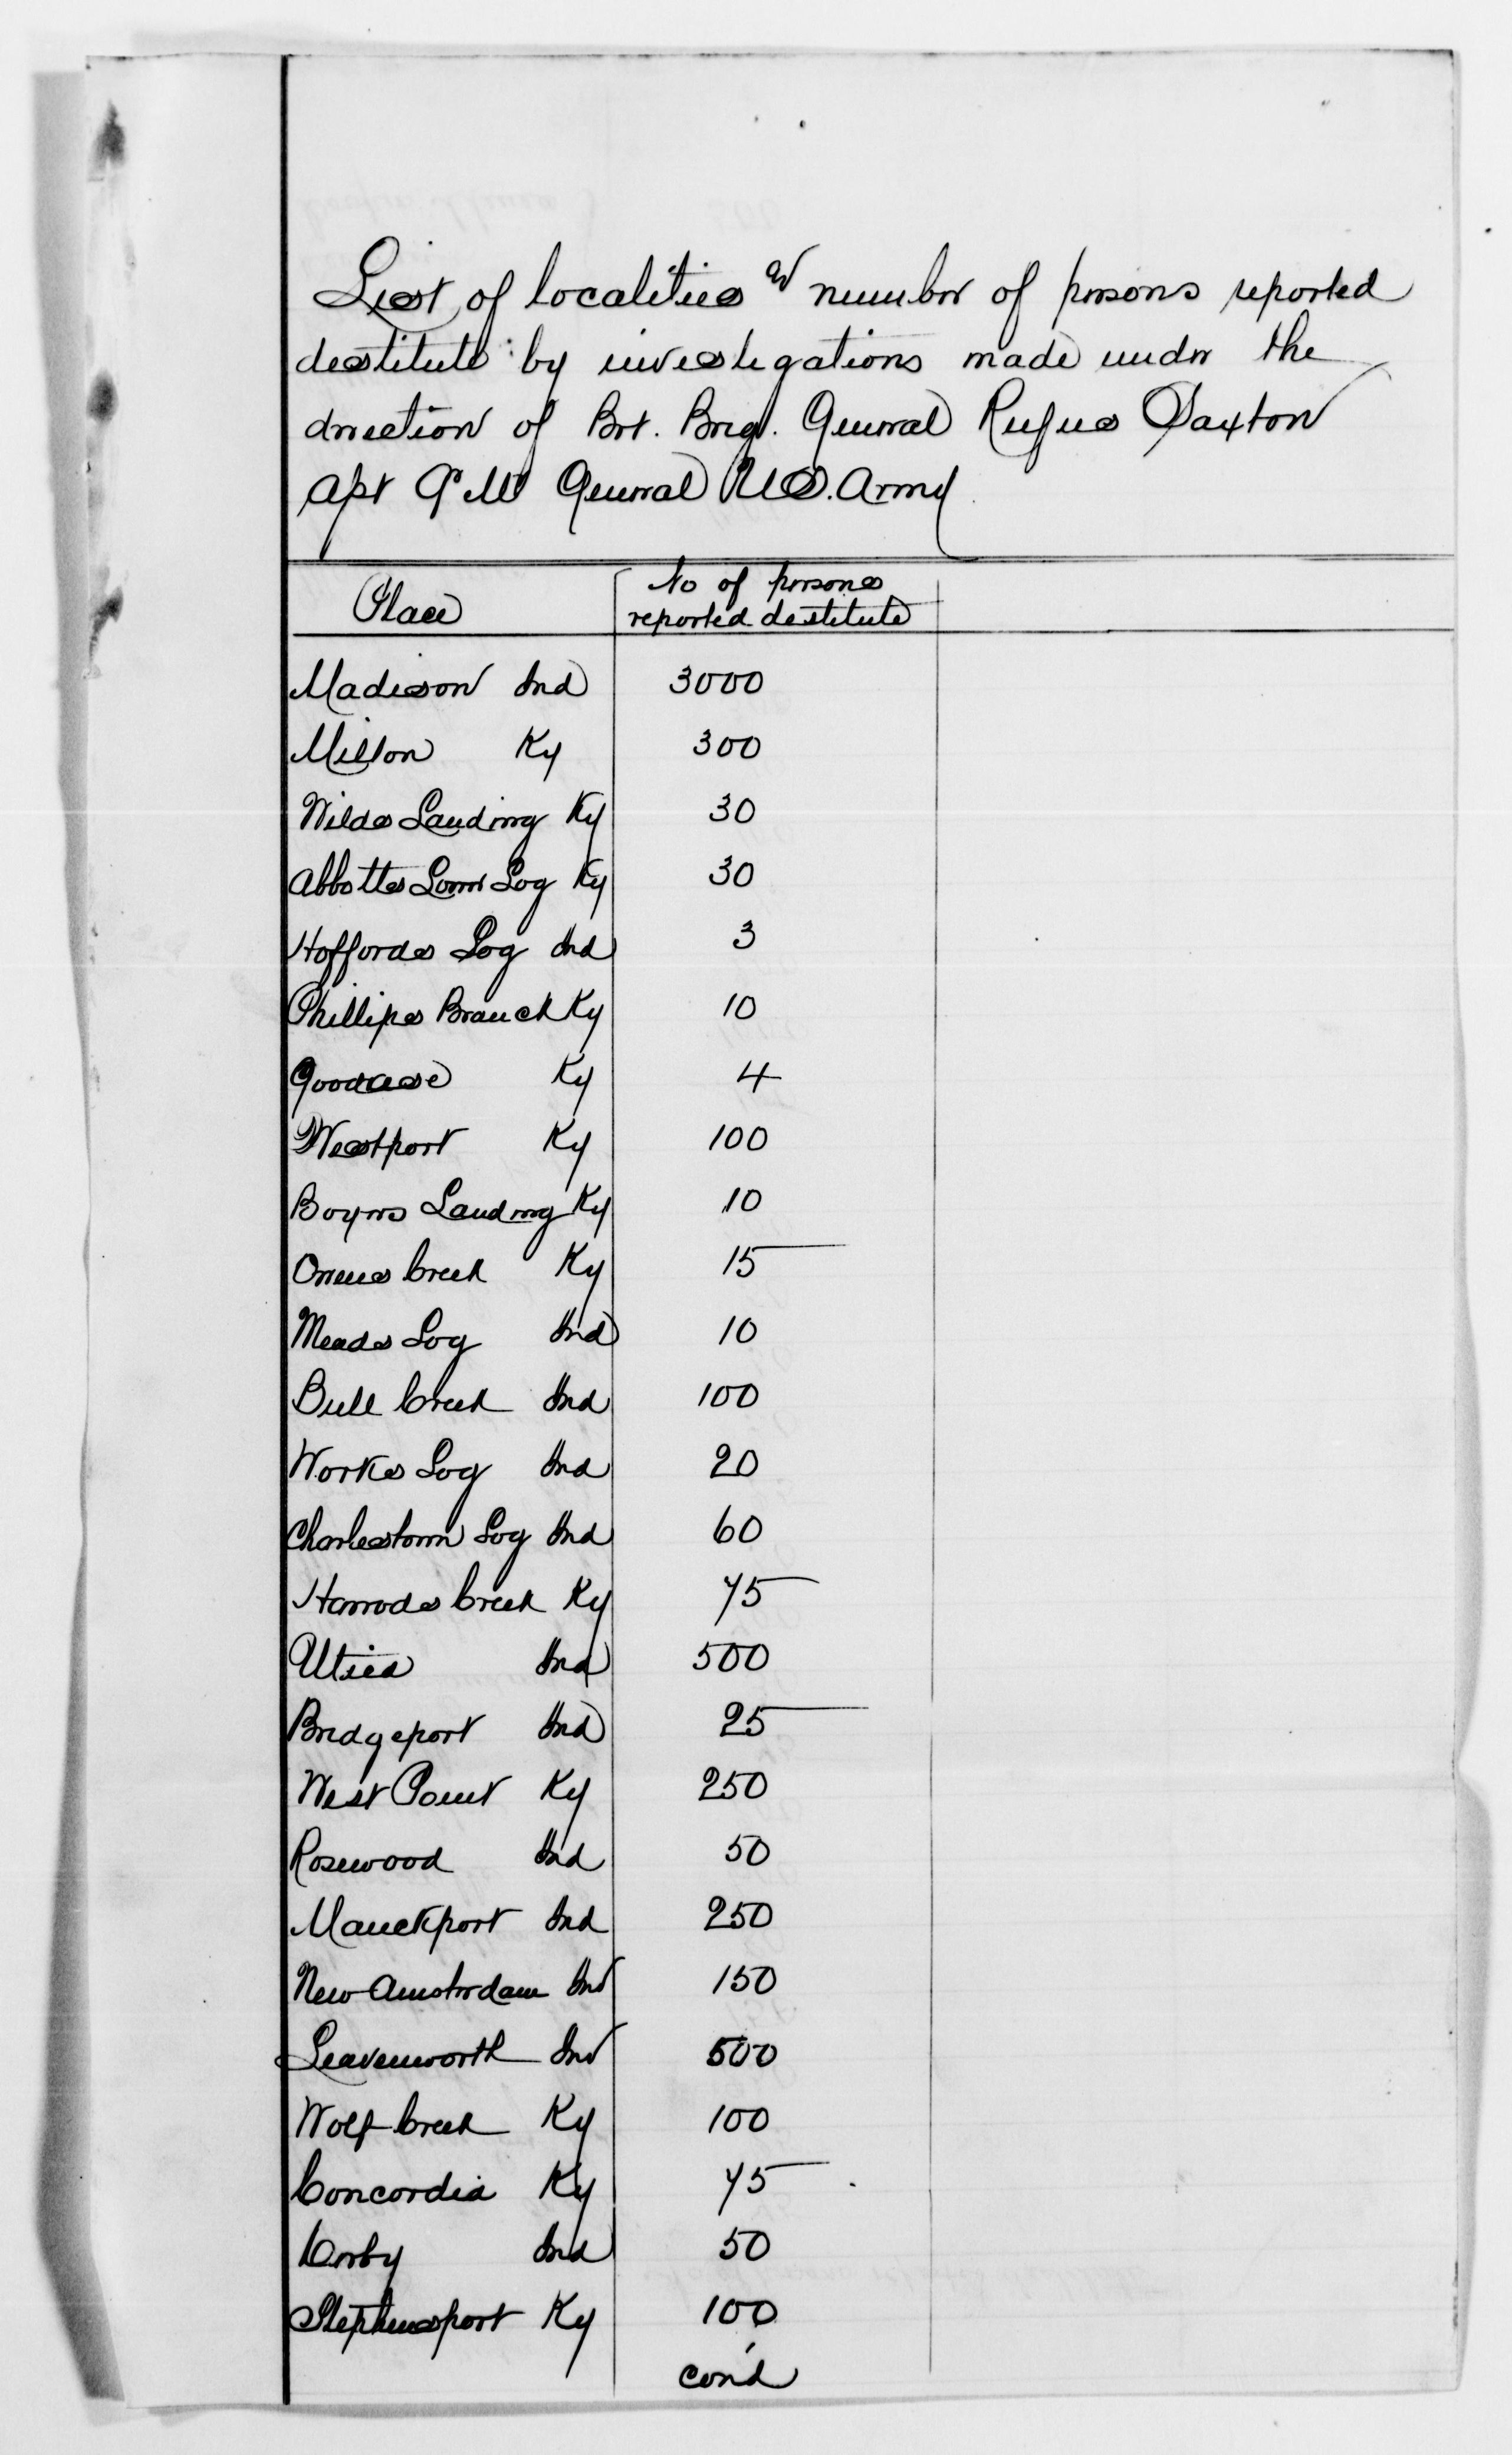 List of localities & number of persons reported
destitute by investigations made under the
direction of Bvt. Brig. General Rufus Saxton
Asst Q M General U.S. Army
Place
No of persons
reported destitute
Madison Ind 3000
Milton Ky 300
Wildes Landing Ky 30
Abbotts Lower Ldg Ky 30
Hoffords Ldg Ind 3
Phillips Branch Ky 10
Ky 4
Westport Ky 100
Boyers Landing Ky 10
Creek Ky 15
Meads Ldg Ind 10
Bull Creek Ind 100
Works Ldg Ind 20
Charlestown Ldg Ind 60
Harrods Creek Ky 75
Utica Ind 500
Bridgeport Ind 25
West Point Ky 250
Rosewood Ind 50
Mauckport Ind 250
New Amsterdam Ind 150
Leavenworth Ind 500
Wolf Creek Ky 100
Concordia Ky 75
Ind 50
Stephensport Ky 100
con'd